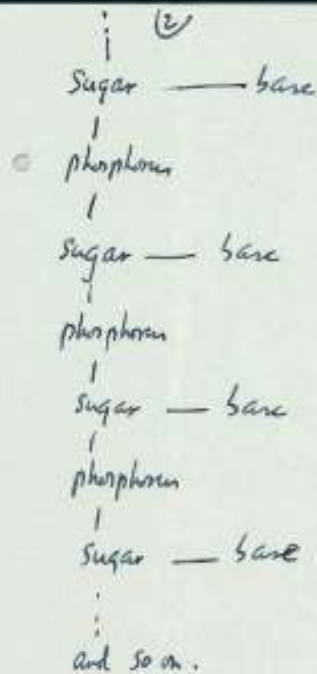 2
sugar — base
phosphorus
sugar — base
phosphorus
sugar — base
phosphorus
sugar — base
and so on.